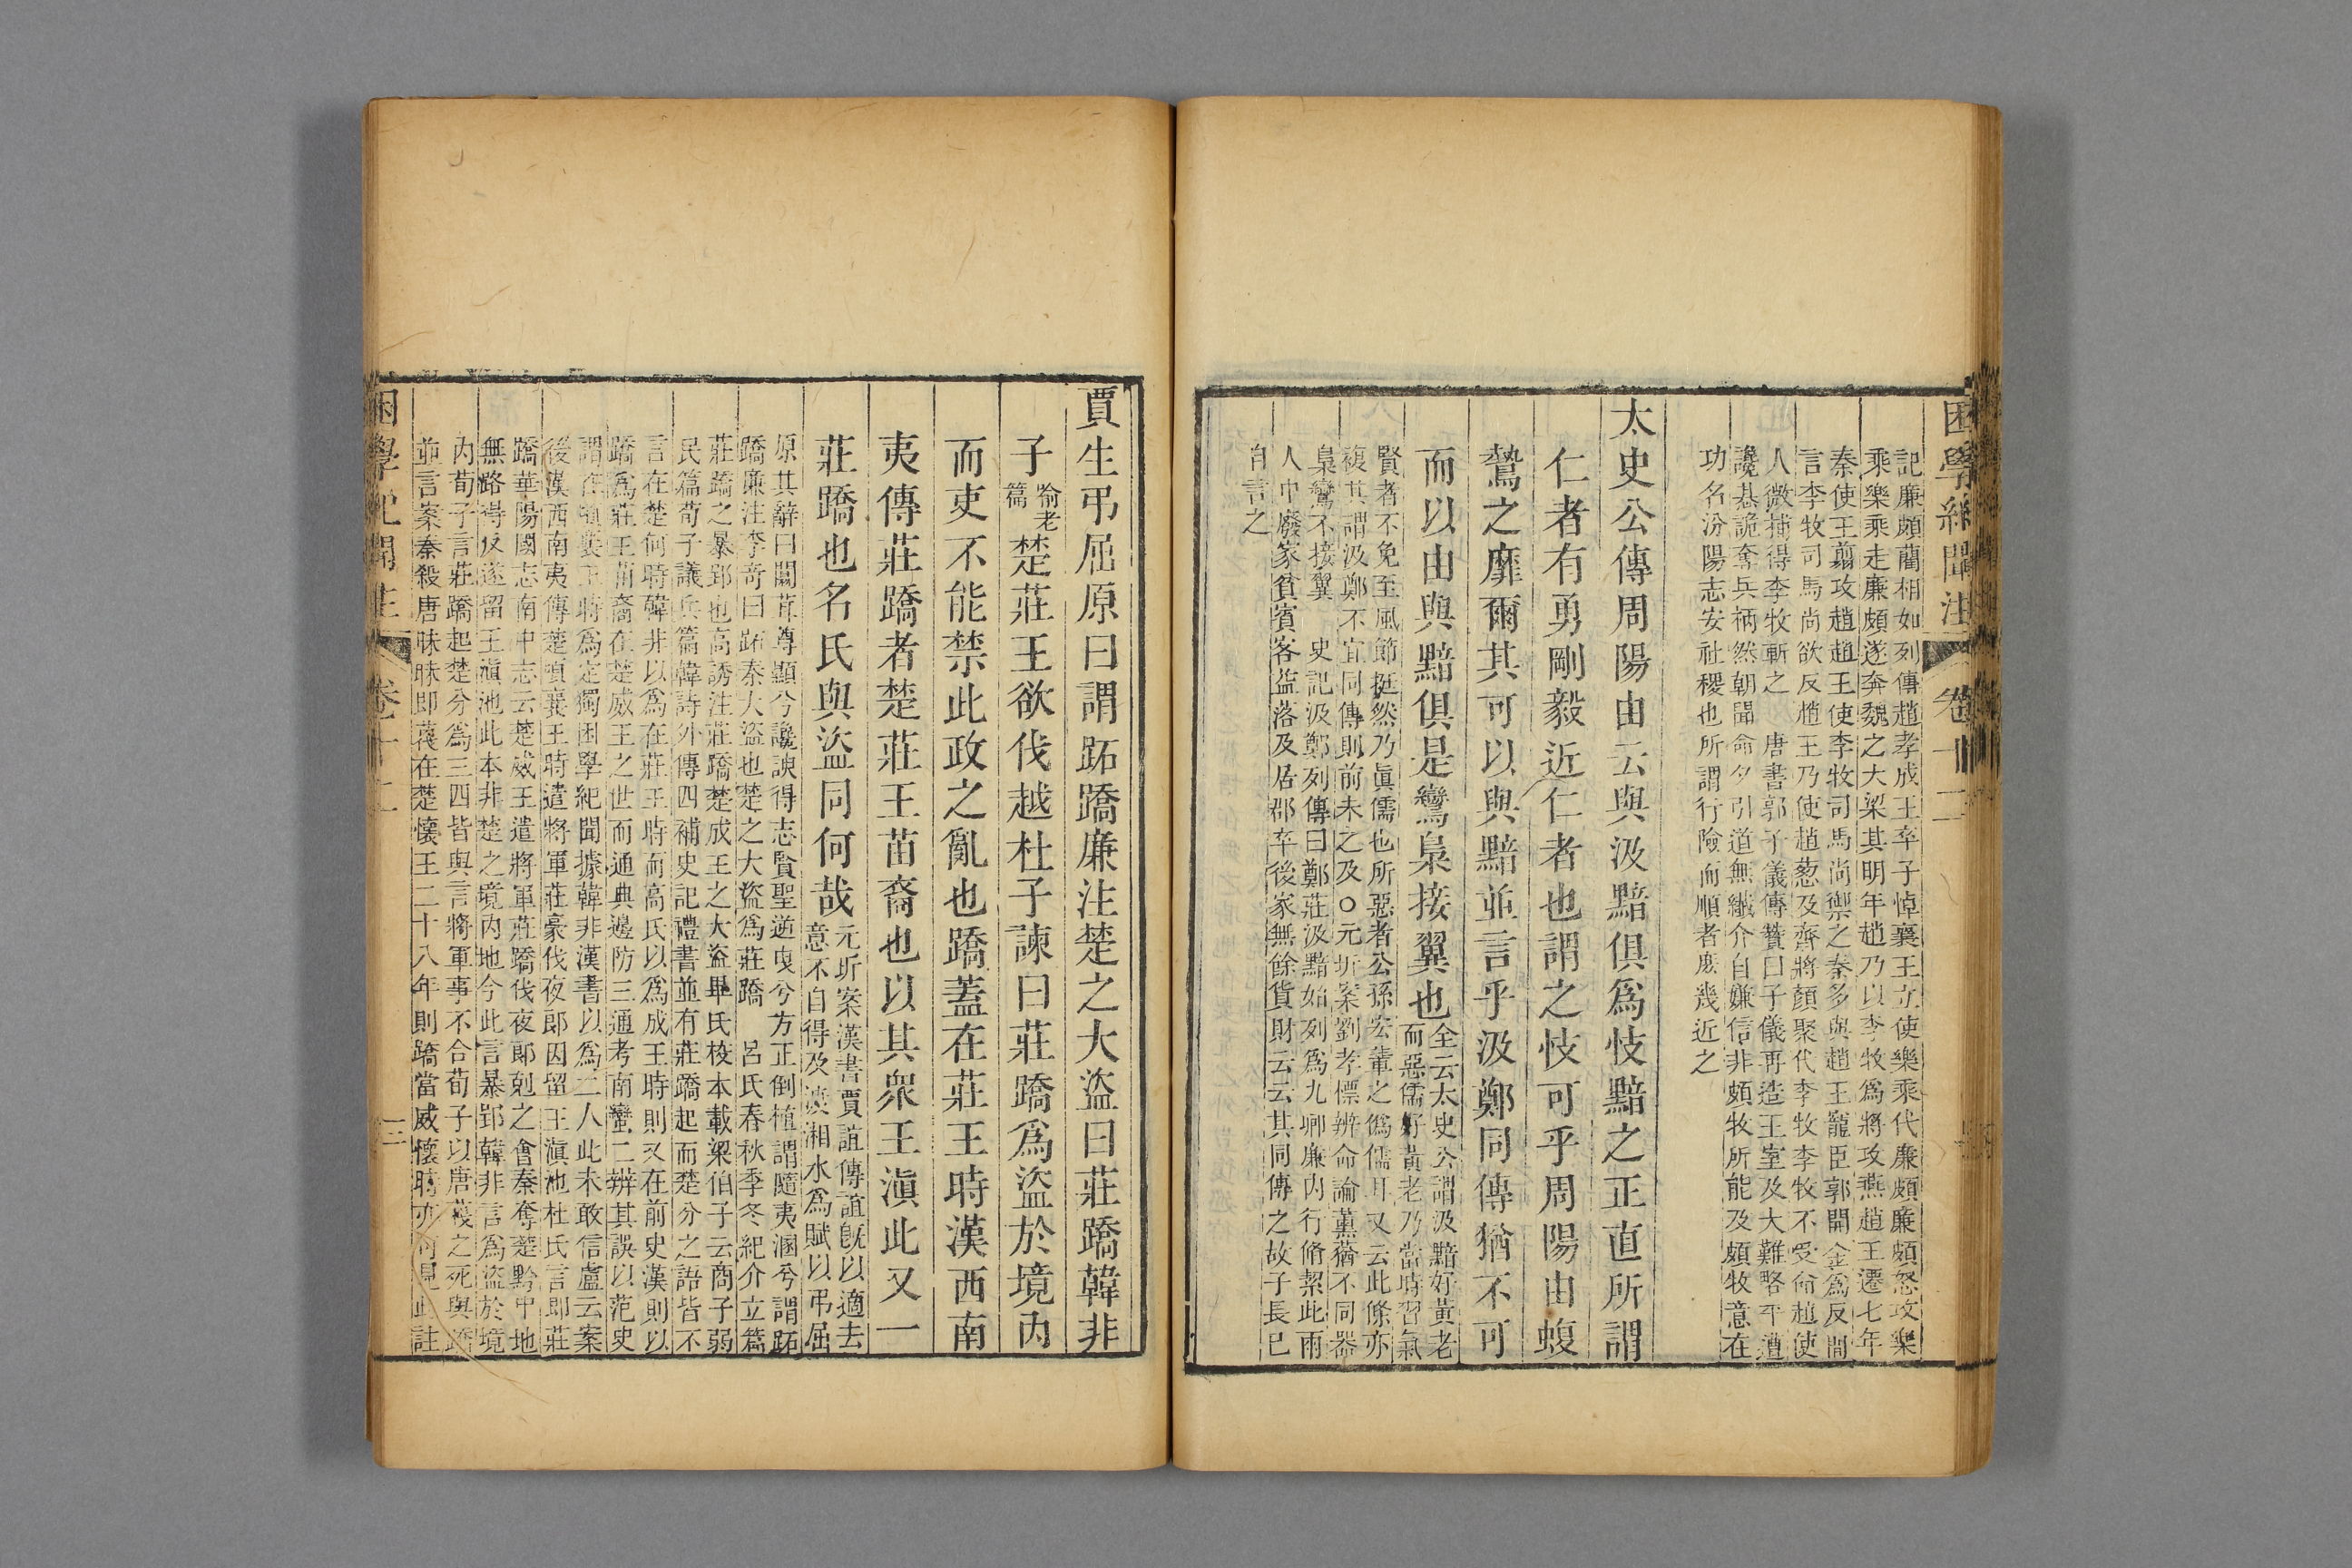 困學紀聞注 卷十二
記廉頗藺相如列傳趙孝成王卒子悼襄王立使樂乘代廉頗廉頗怒攻樂
乘樂乘走廉頗遂奔魏之大梁其明年趙乃以李牧爲將攻燕趙王遷七年
秦使王翦攻趙趙王使李牧司馬尚禦之秦多與趙王寵臣郭開金爲反閒
言李牧司馬尚欲反趙王乃使趙葱及齊將顏聚代李牧李牧不受命趙使
人微捕得李牧斬之 唐書郭子儀傳贊曰子儀再造王室及大難略平遭
讒惎詭奪兵柄然朝聞命夕引道無纖介自嫌信非頗牧所能及頗牧意在
功名汾陽志安社稷也所謂行險而順者庶幾近之
太史公傳周陽由云與汲黯俱爲忮黯之正直所謂
仁者有勇剛毅近仁者也謂之忮可乎周陽由蝮
鷙之靡爾其可以與黯並言乎汲鄭同傳猶不可
而以由與黯俱是鸞梟接翼也
全云太史公謂汲黯好黃老
而惡儒好黃老乃當時習氣
賢者不免至風節挺然乃眞儒也所惡者公孫宏輩之僞儒耳又云此條亦
複其謂汲鄭不宜同傳則前未之及○元圻案劉孝標辨命論薰蕕不同器
梟鸞不接翼 史記汲鄭列傳曰鄭莊汲黯始列爲九卿廉內行脩絜此兩
人中廢家貧賓客益落及居郡卒後家無餘貨財云云其同傳之故子長已
自言之
賈生弔屈原曰謂跖蹻廉注楚之大盜曰莊蹻韓非
子
喻老
篇
楚莊王欲伐越杜子諫曰莊蹻爲盜於境內
而吏不能禁此政之亂也蹻蓋在莊王時漢西南
夷傳莊蹻者楚莊王苗裔也以其眾王滇此又一
莊蹻也名氏與盜同何哉
元圻案漢書賈誼傳誼旣以適去
意不自得及渡湘水爲賦以弔屈
原其辭曰闒茸尊顯兮讒諛得志賢聖逆曳兮方正倒植謂隨夷溷兮謂跖
蹻廉注李奇曰跖秦大盜也楚之大盜爲莊蹻 呂氏春秋季冬紀介立篇
莊蹻之暴郢也高誘注莊蹻楚成王之大盜畢氏校本載梁伯子云商子弱
民篇荀子議兵篇韓詩外傳四補史記禮書並有莊蹻起而楚分之語皆不
言在楚何時韓非以爲在莊王時而高氏以爲成王時則又在前史漢則以
蹻爲莊王苗裔在楚威王之世而通典邊防三通考南蠻二辨其誤以范史
謂在頃襄王時爲定獨困學紀聞據韓非漢書以爲二人此未敢信盧云案
後漢西南夷傳楚頃襄王時遣將軍莊豪伐夜郎因留王滇池杜氏言即莊
蹻華陽國志南中志云楚威王遣將軍莊蹻伐夜郎剋之會秦奪楚黔中地
無路得反遂留王滇池此本非楚之境內地今此言暴郢韓非言爲盜於境
內荀子言莊蹻起楚分爲三四皆與言將軍事不合荀子以唐蔑之死與蹻
並言案秦殺唐眜眜即蔑在楚懷王二十八年則蹻當威懷時亦可見此註
困學紀聞注 卷十二 三